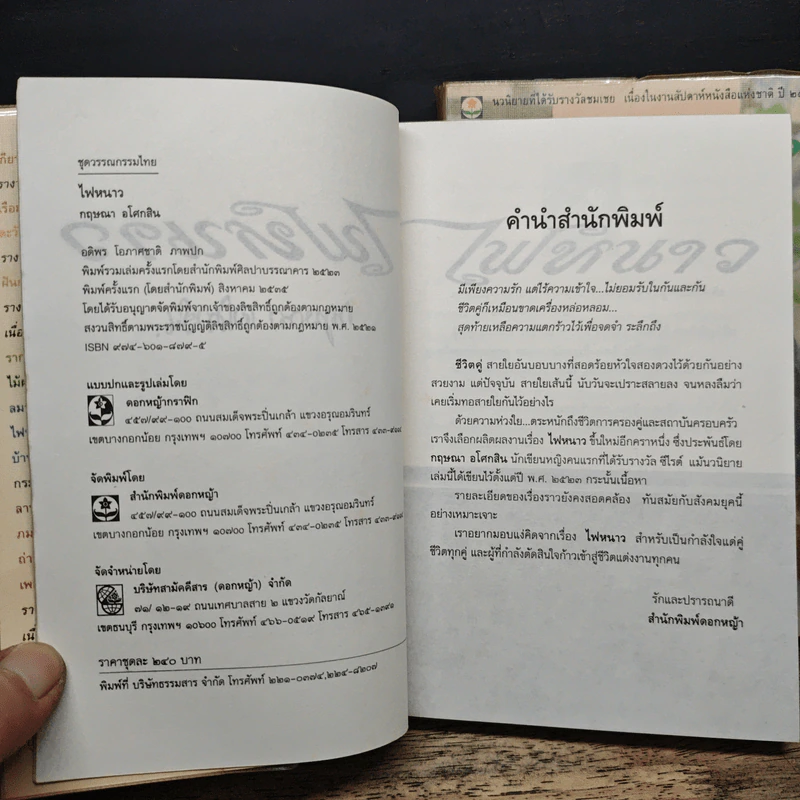 นวนิยายที่ได้รับรางวัลชมเชย เนื่องในงานสัปดาห์หนังสือแห่งชาติ ปี
ชุดวรรณกรรมไทย
ไฟหนาว
กฤษณา อโศกสิน
อดิพร โอภาศชาติ ภาพปก
พิมพ์รวมเล่มครั้งแรกโดยสำนักพิมพ์ศิลปาบรรณาคาร ๒๕๒๓
พิมพ์ครั้งแรก (โดยสำนักพิมพ์) สิงหาคม ๒๕๓๕
โดยได้รับอนุญาตจัดพิมพ์จากเจ้าของลิขสิทธิ์ถูกต้องตามกฎหมาย
สงวนสิทธิ์ตามพระราชบัญญัติลิขสิทธิ์ถูกต้องตามกฎหมาย พ.ศ. ๒๕๒๑
ISBN ๙๗๔-๖๐๑-๘๗๙-๕
แบบปกและรูปเล่มโดย
ดอกหญ้ากราฟิก
๔๕๗/๙๙-๑๐๐ ถนนสมเด็จพระปิ่นเกล้า แขวงอรุณอมรินทร์
เขตบางกอกน้อย กรุงเทพฯ ๑๐๗๐๐ โทรศัพท์ ๔๓๔-๐๒๓๕ โทรสาร
จัดพิมพ์โดย
สำนักพิมพ์ดอกหญ้า
๔๕๗/๙๙-๑๐๐ ถนนสมเด็จพระปิ่นเกล้า แขวงอรุณอมรินทร์
เขตบางกอกน้อย กรุงเทพฯ ๑๐๗๐๐ โทรศัพท์ ๔๓๔-๐๒๓๕ โทรสาร
จัดจำหน่ายโดย
บริษัทสามัคคีสาร (ดอกหญ้า) จำกัด
๗๑/ ๑๒-๑๙ ถนนเทศบาลสาย ๒ แขวงวัดกัลยาณ์
เขตธนบุรี กรุงเทพฯ ๑๐๖๐๐ โทรศัพท์ ๔๖๖-๐๕๑๙ โทรสาร ๔๖๕-๑๓๙๑
ราคาชุดละ ๒๔๐ บาท
พิมพ์ที่ บริษัทธรรมสาร จำกัด โทรศัพท์ ๒๒๑-๐๓๗๔,๒๒๔-๘๒๐๗
คำนำสำนักพิมพ์
มีเพียงความรัก แต่ไร้ความเข้าใจ...ไม่ยอมรับในกันและกัน
ชีวิตคู่ก็เหมือนขาดเครื่องหล่อหลอม...
สุดท้ายเหลือความแตกร้าวไว้เพื่อจดจำ ระลึกถึง
ชีวิตคู่ สายใยอันบอบบางที่สอดร้อยหัวใจสองดวงไว้ด้วยกันอย่าง
สวยงาม แต่ปัจจุบัน สายใยเส้นนี้ นับวันจะเปราะสลายลง จนหลงลืมว่า
เคยเริ่มทอสายใยกันไว้อย่างไร
ด้วยความห่วงใย...ตระหนักถึงชีวิตการครองคู่และสถาบันครอบครัว
เราจึงเลือกผลิตผลงานเรื่อง ไฟหนาว ขึ้นใหม่อีกคราหนึ่ง ซึ่งประพันธ์โดย
กฤษณา อโศกสิน นักเขียนหญิงคนแรกที่ได้รับรางวัล ซีไรต์ แม้นวนิยาย
เล่มนี้ได้เขียนไว้ตั้งแต่ปี พ.ศ. ๒๕๒๓ กระนั้นเนื้อหา
รายละเอียดของเรื่องราวยังคงสอดคล้อง ทันสมัยกับสังคมยุคนี้
อย่างเหมาะเจาะ
เราอยากมอบแง่คิดจากเรื่อง ไฟหนาว สำหรับเป็นกำลังใจแด่คู่
ชีวิตทุกคู่ และผู้ที่กำลังตัดสินใจก้าวเข้าสู่ชีวิตแต่งงานทุกคน
รักและปรารถนาดี
สำนักพิมพ์ดอกหญ้า